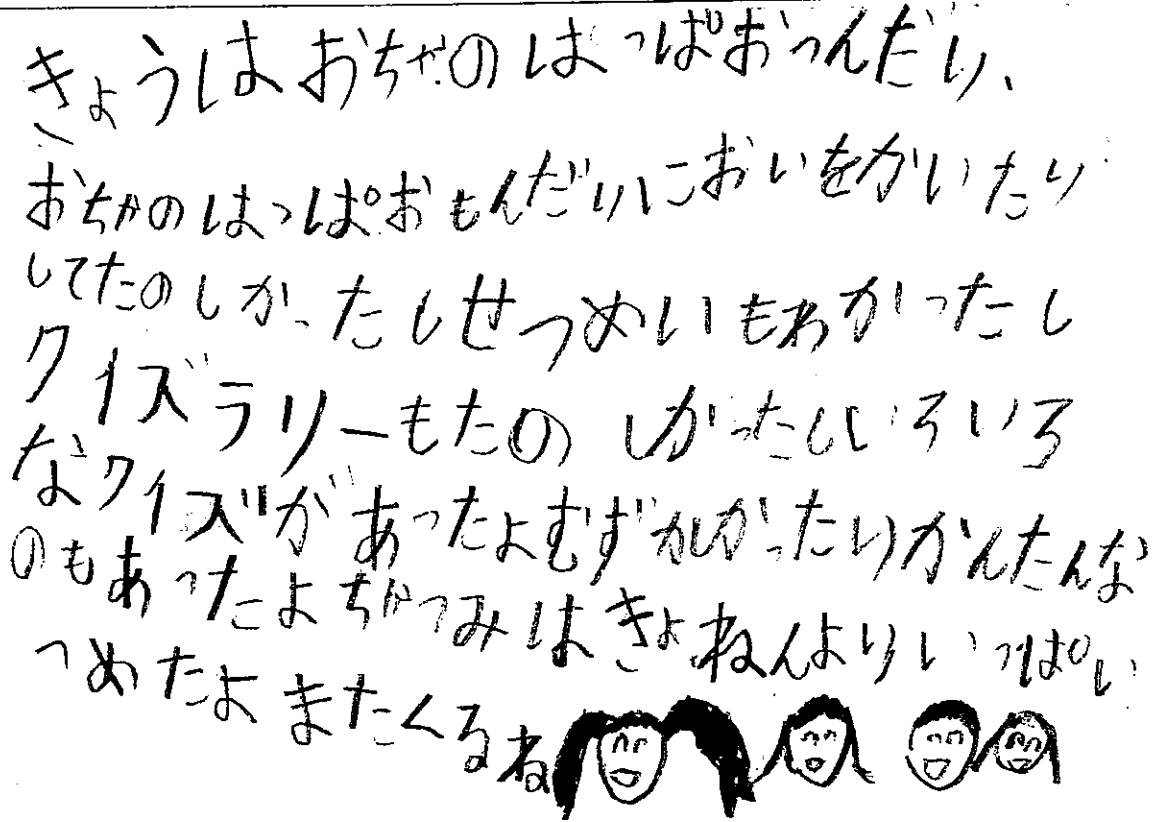 きょうはおちゃのはっぱおつんだり、
おちゃのはっぱおもんだりにおいをかいたり
してたのしかったしせつめいもわかったし
クイズラリーもたのしかったしいろいろ
なクイズがあったよむずかしかったりかんたんな
のもあったよちゃつみはきょねんよりいっぱい
つめたよまたくるね